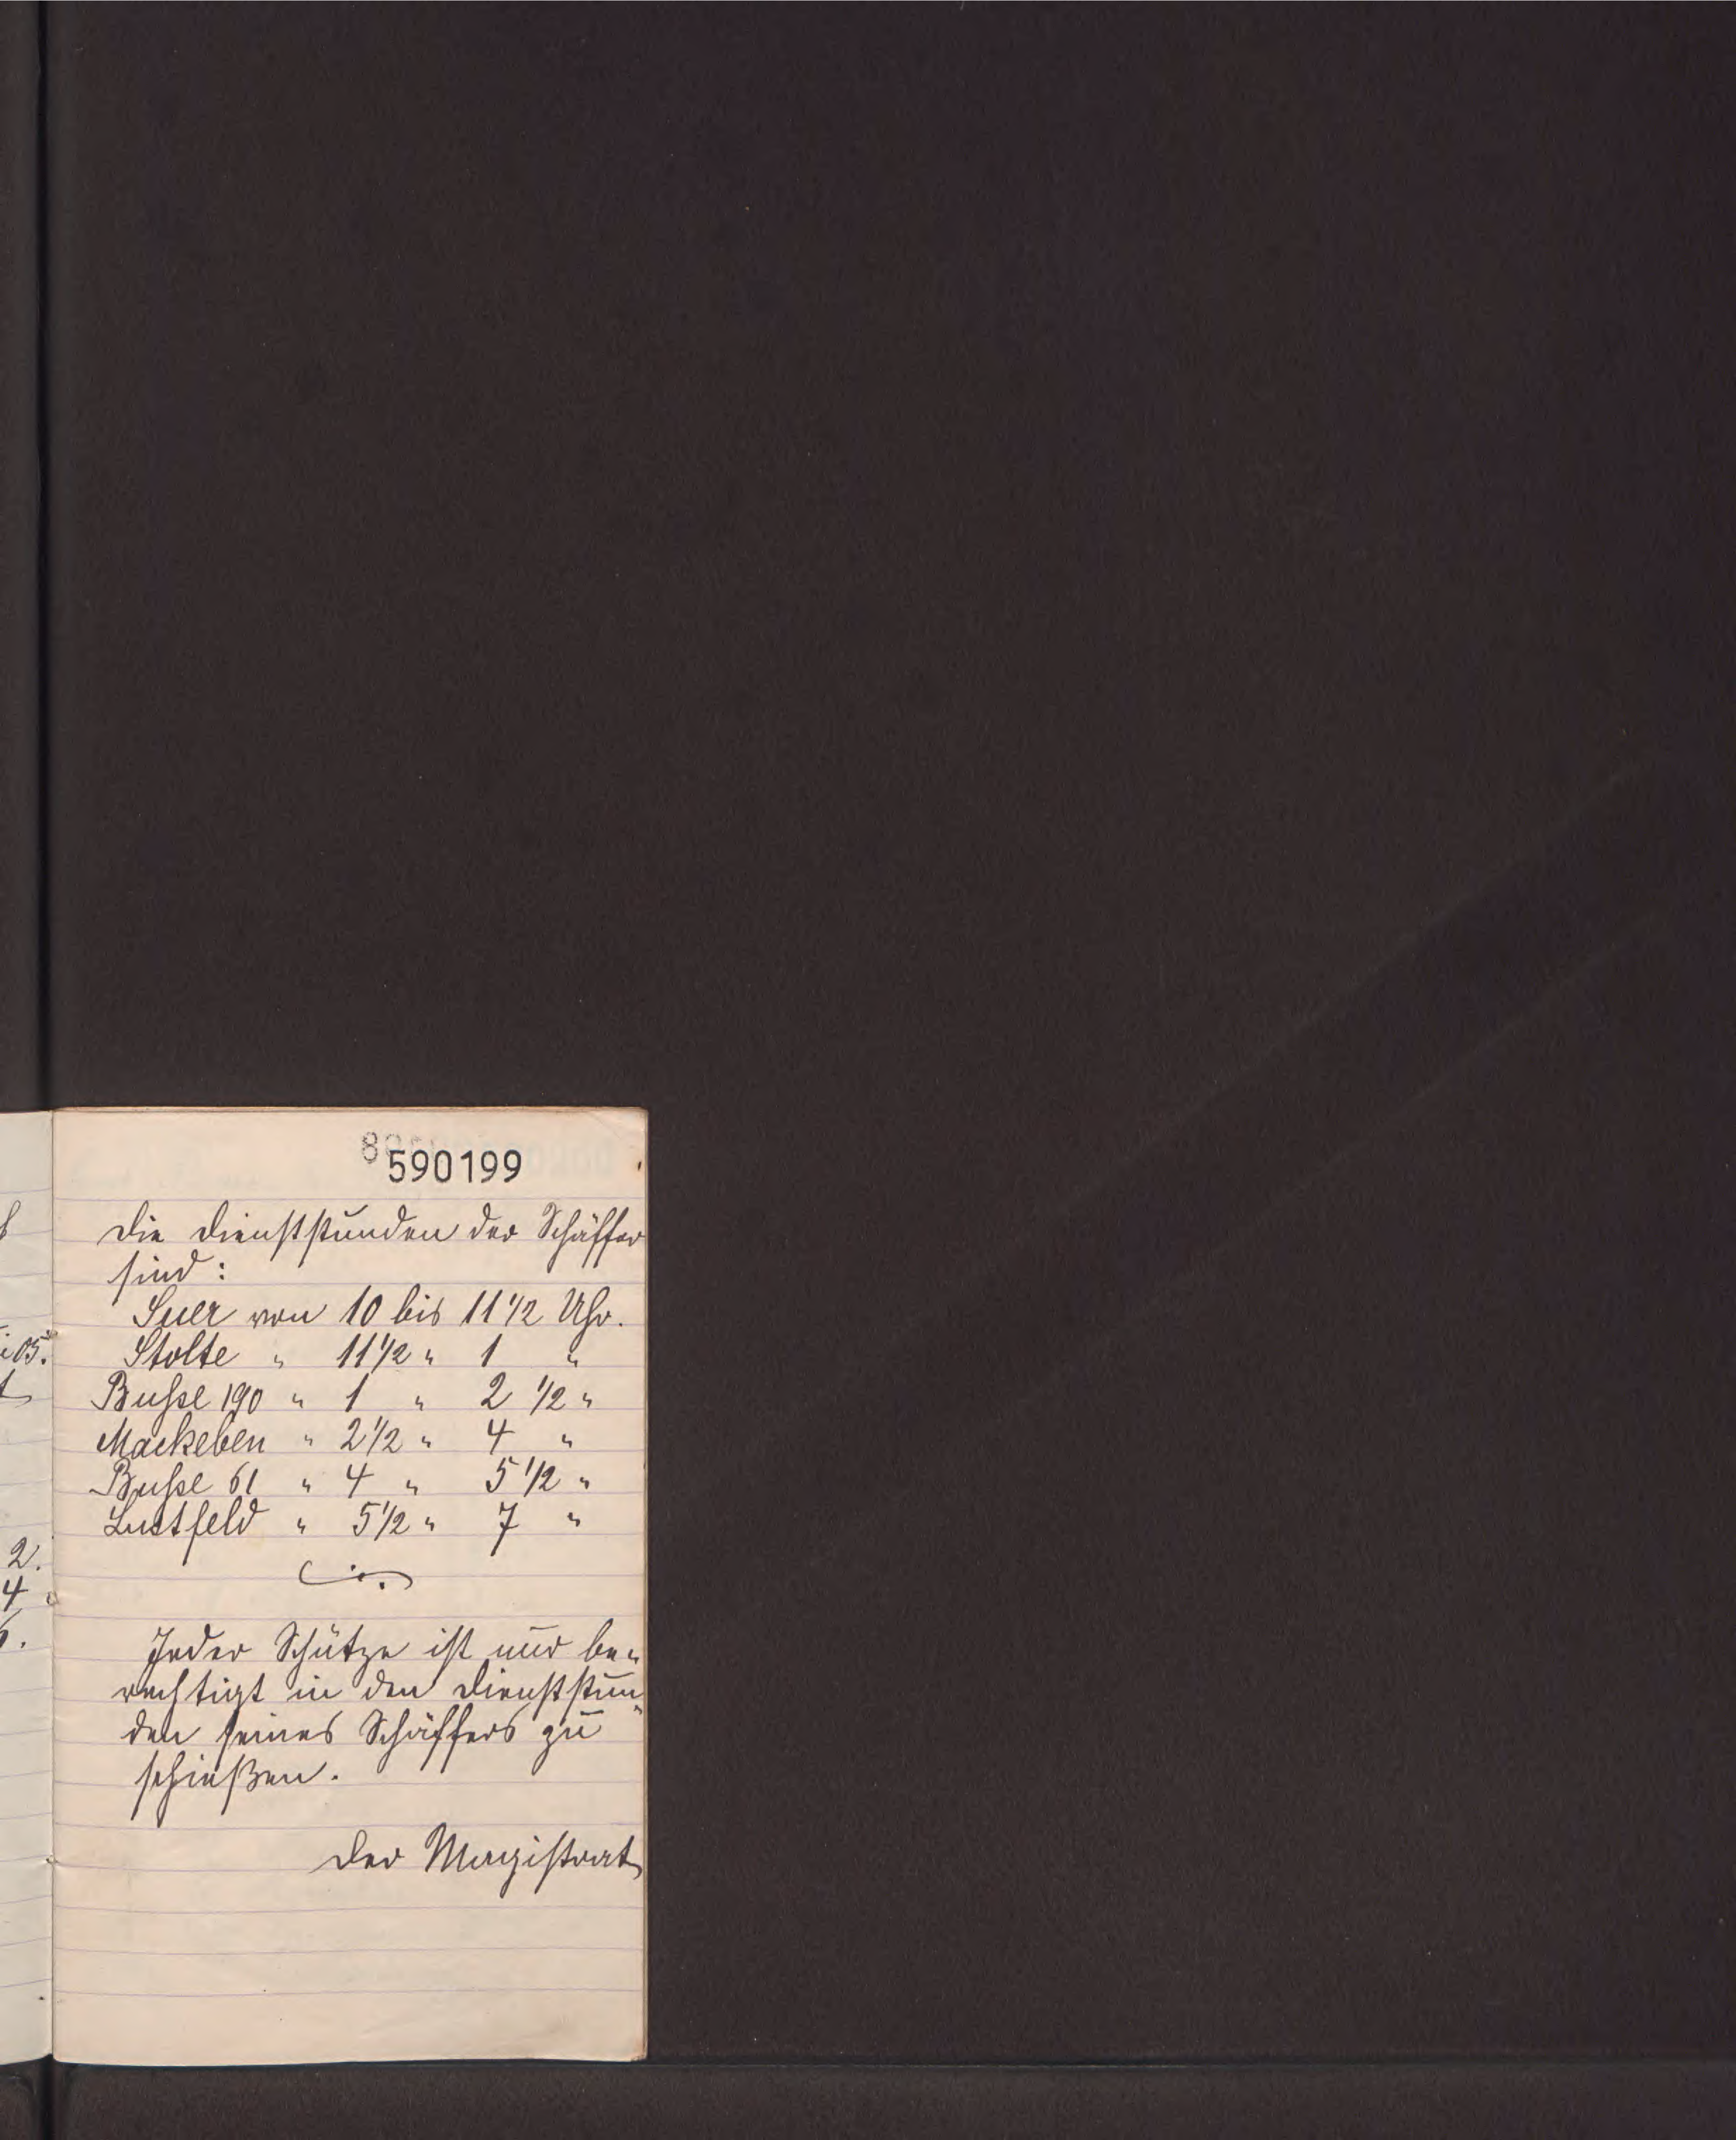 590199
Die Dienststunden der Schäffer
sind:
Suer von 10 bis 11 1/2 Uhr.
Stolte " 11 1/2 " 1 "
Busse 190 " 1 " 2 1/2 "
Mackeben " 2 1/2 " 4 "
Busse 61 " 4 " 5 1/2 "
Lustfeld " 5 1/2 " 7 "
Jeder Schütze ist nur be-
rechtigt in den Dienststun-
den seines Schäffers zu
schießen.
Der Magistrat